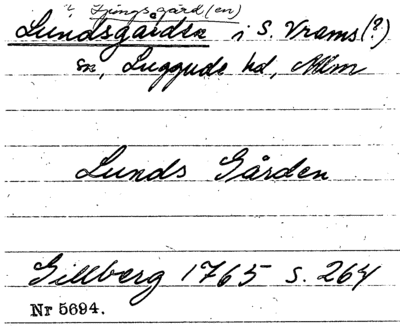 ? Ljungsgård(en)
Lundsgården i S. Vrams(?)
sn, Luggude hd, Mlm
Lunds Gården
Gillberg 1765 s. 264
Nr 5694.